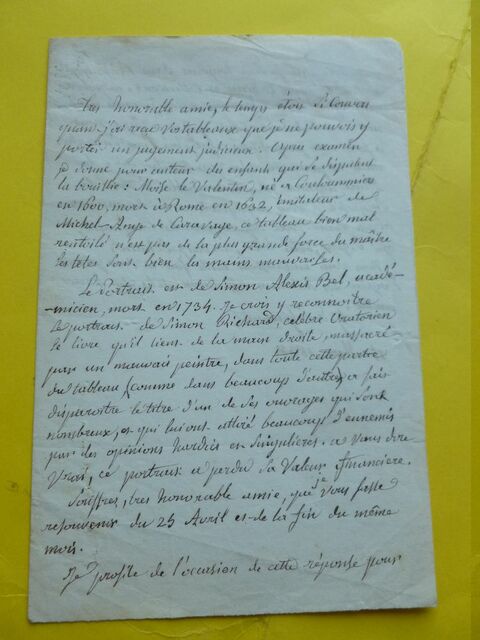 Très honorable amie, le temps étoit si couvert
quand j'ai reçu vos tableaux que je ne pouvois y
porter un jugement judicieux. Après examen
je donne pour auteur du enfants qui se disputent
la bouillie : Moïse le Valentin, né à Coulommiers
en 1600, mort à Rome en 1632, imitateur de
Michel-Ange de Caravage, ce tableau bien mal
rentoilé n'est pas de la plus grande force du maître
les têtes sont bien les mains mauvaises.
Le Portrait est de Simon Alexis Bel, acadé-
-micien, mort en 1734. Je crois y reconnoitre
le portrait de Simon Richard, célèbre oratorien
le livre qu'il tient de la main droite, massacré
par un mauvais peintre, dans toute cette partie
du tableau (comme dans beaucoup d'autres) a fait
disparoitre le titre d'un de ses ouvrages qui sont
nombreux, et qui lui ont attiré beaucoup d'ennemis
par des opinions hardies et singulières. à vous dire
vrai, ce portrait a perdu sa valeur financière.
Souffrez, très honorable amie, que je vous fasse
resouvenir du 25 Avril et de la fin du même
mois.
Je profite de l'occasion de cette réponse pour